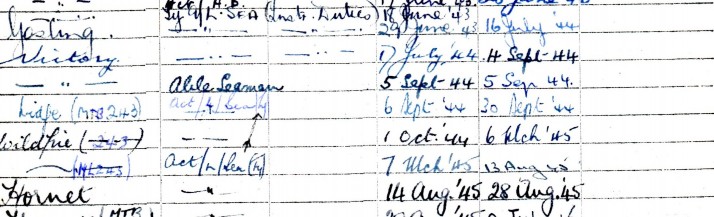 Sy C/L. SEA (Instr. Duties) 17 June '43
Gosling. — " — — " — 29 June '43 16 July '44
Victory. — " — — " — 17 July '44 4 Sept 44
— " — Able Seaman 5 Sept 44 5 Sep 44.
(MTB 243) Act/L/Sea 6 Sept '44 30 Sept '44
Wildfire (243) — " — 1 Oct. '44 6 Mch '45
(ML243) Act/L/Sea (Ty) 7 Mch '45 13 Aug 45
Hornet — " — 14 Aug. '45 28 Aug. '45
(MTB